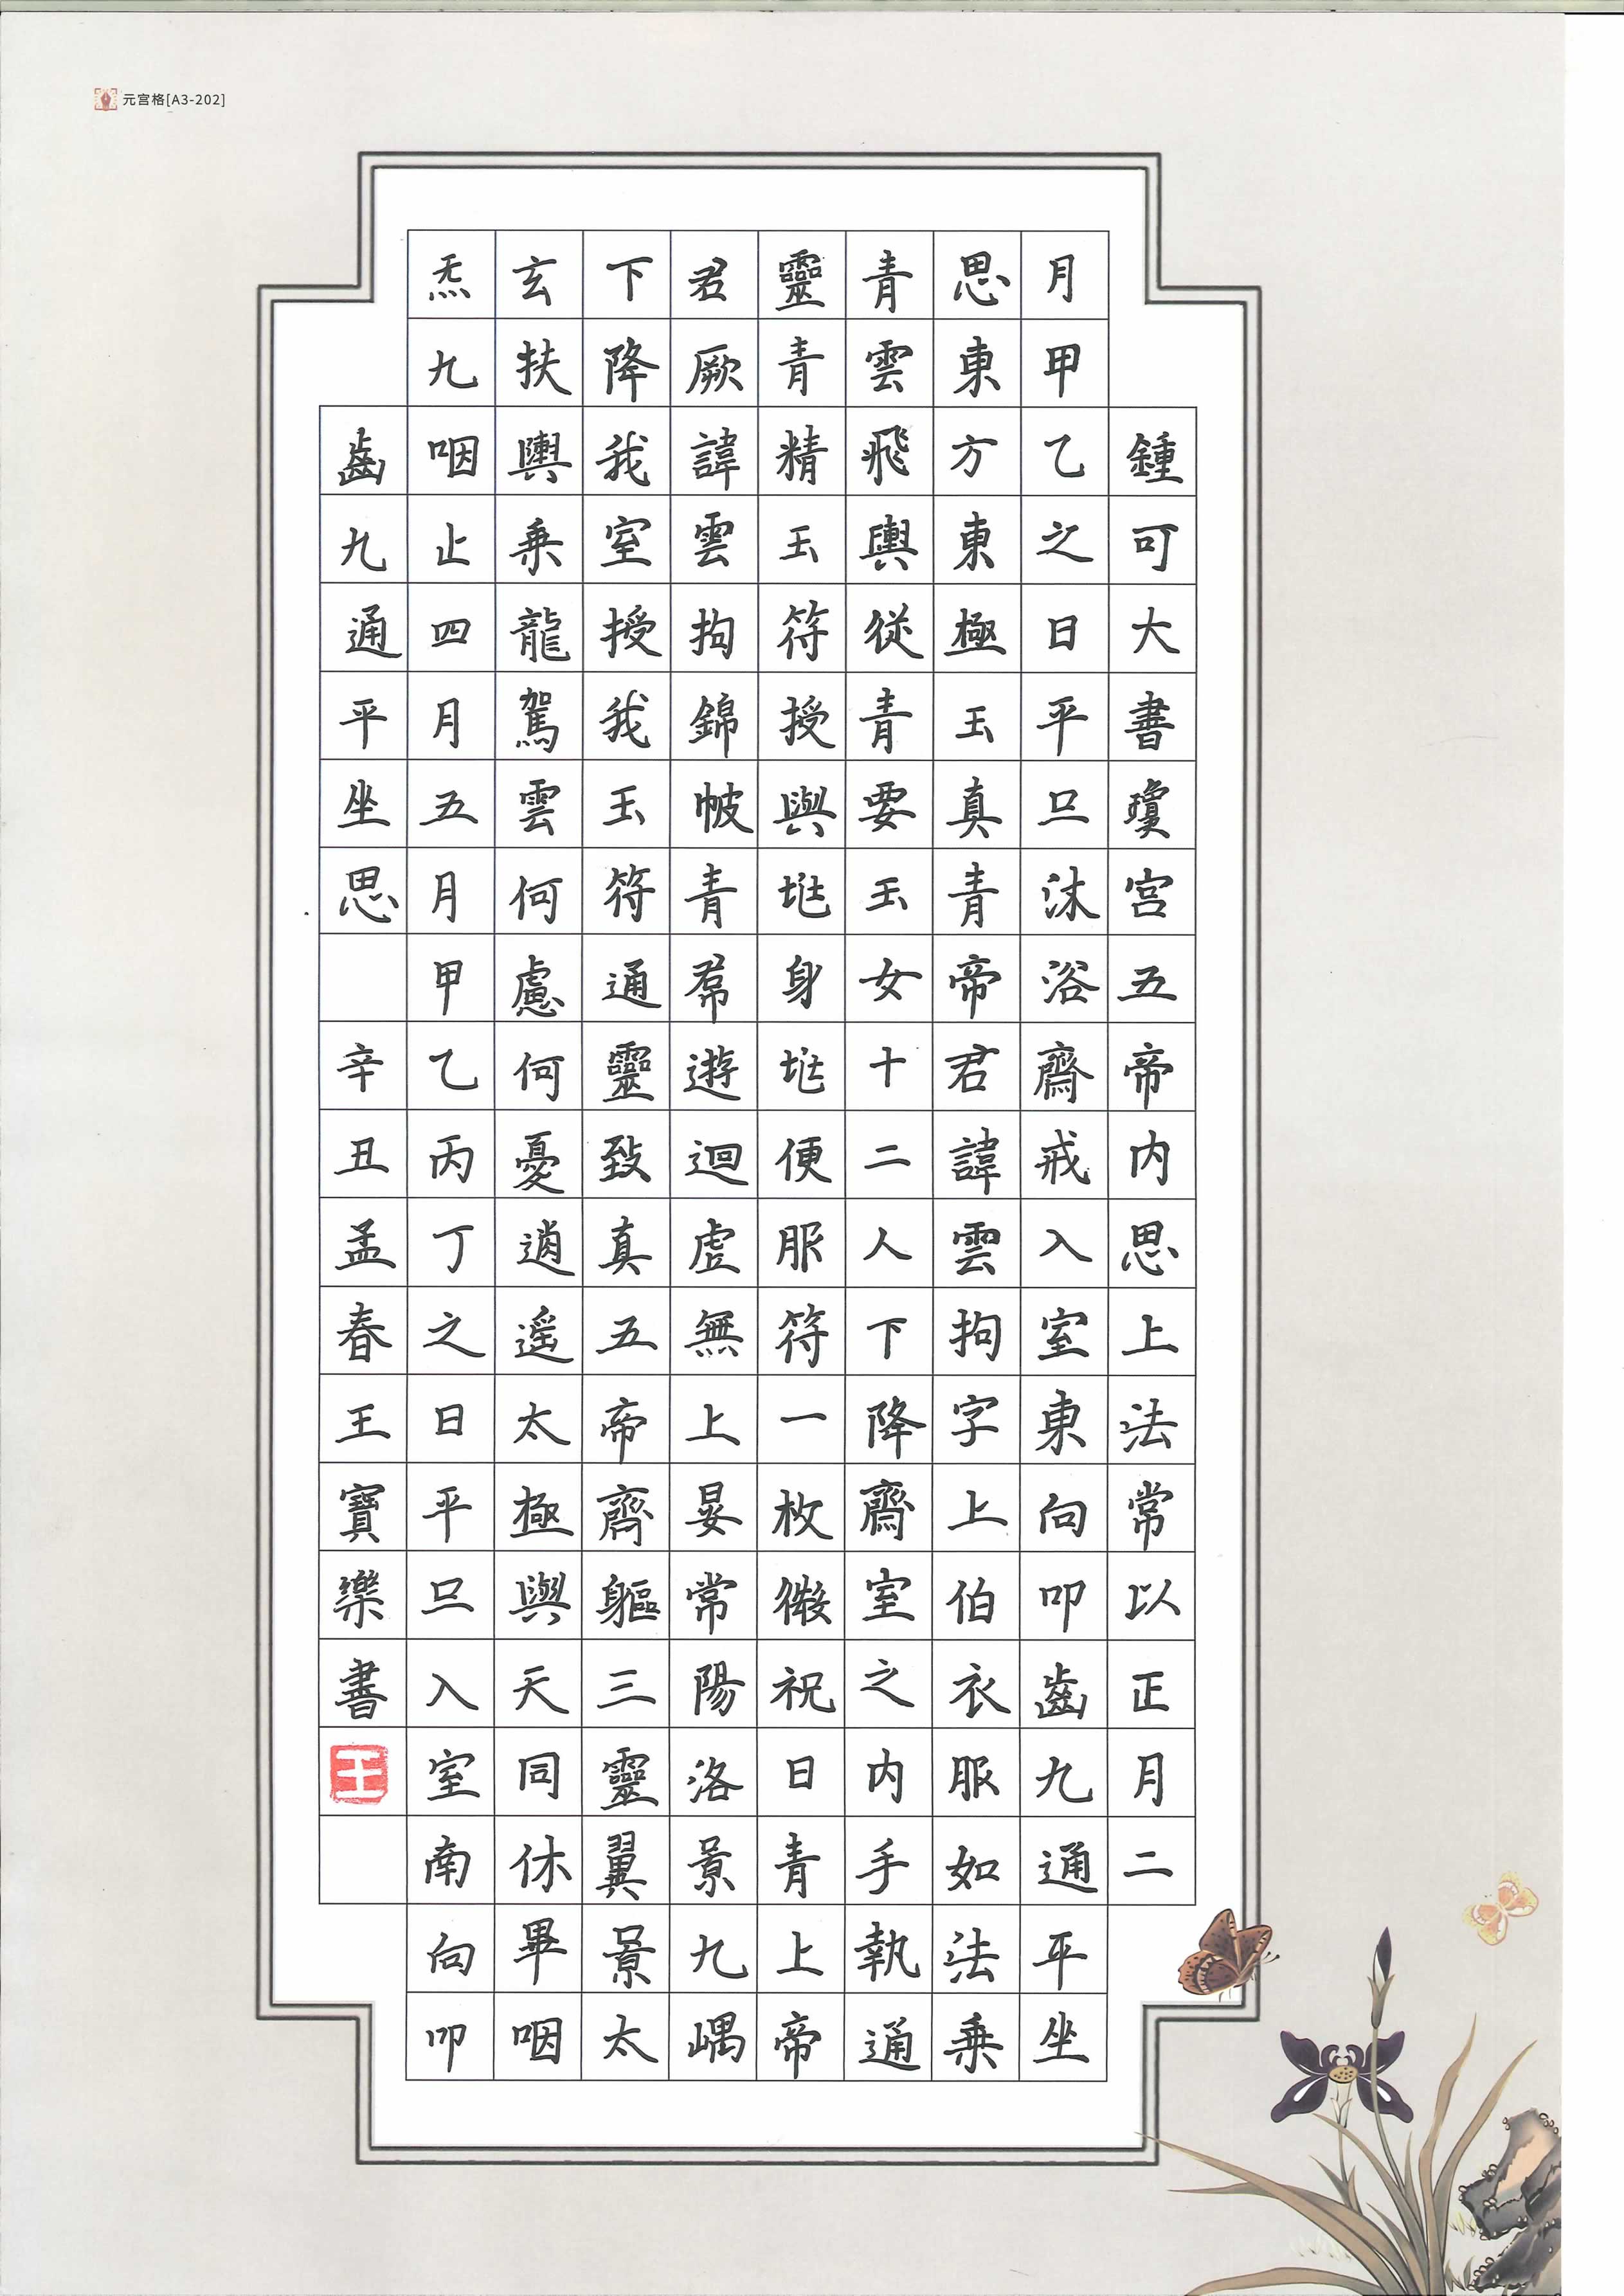 元宫格[A3-202]
鍾可大書瓊宮五帝内思上法常以正月二
月甲乙之日平旦沐浴齋戒入室東向叩齒九通平坐
思東方東極玉真青帝君諱雲拘字上伯衣服如法乗
青雲飛輿從青要玉女十二人下降齋室之内手執通
靈青精玉符授與兆身兆便服符一枚微祝日青上帝
君厥諱雲拘錦帔青帬遊迴虛無上晏常陽洛景九嵎
下降我室授我玉符通靈致真五帝齊軀三靈翼景太
玄扶輿乗龍駕雲何慮何憂逍遥太極與天同休畢咽
炁九咽止四月五月甲乙丙丁之日平旦入室南向叩
齒九通平坐思 辛丑孟春王寶樂書
王